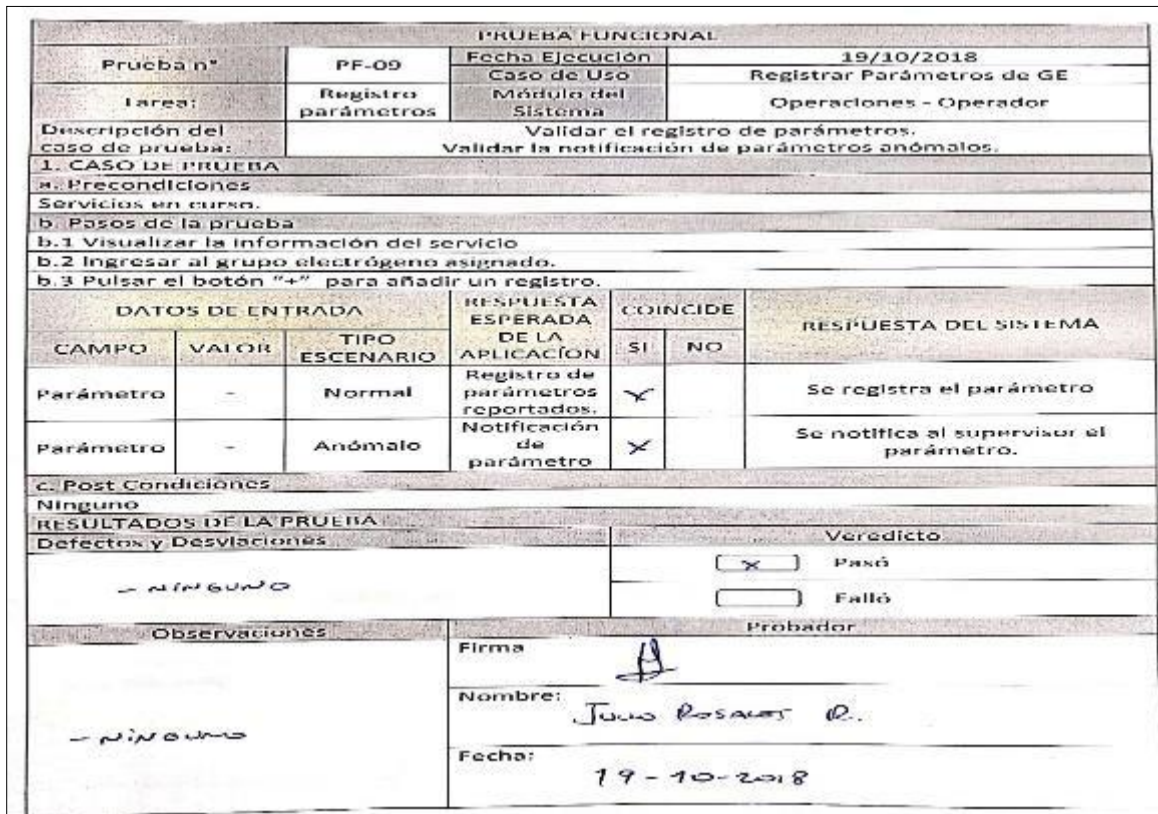 PRUEBA FUNCIONAL
Prueba n° PF-09 Fecha Ejecución 19/10/2018
Caso de Uso Registrar Parámetros de GE
Tarea: Registro parámetros Módulo del Sistema Operaciones - Operador
Descripción del caso de prueba: Validar el registro de parámetros.
Validar la notificación de parámetros anómalos.
1. CASO DE PRUEBA
a. Precondiciones
Servicios en curso.
b. Pasos de la prueba
b.1 Visualizar la información del servicio
b.2 Ingresar al grupo electrógeno asignado.
b.3 Pulsar el botón "+" para añadir un registro.
DATOS DE ENTRADA RESPUESTA ESPERADA DE LA APLICACÍON COINCIDE RESPUESTA DEL SISTEMA
CAMPO VALOR TIPO ESCENARIO SI NO
Parámetro - Normal Registro de parámetros reportados. X Se registra el parámetro
Parámetro - Anómalo Notificación de parámetro X Se notifica al supervisor el parámetro.
c. Post Condiciones
Ninguno
RESULTADOS DE LA PRUEBA
Defectos y Desviaciones Veredicto
- NINGUNO
X Pasó
Falló
Observaciones Probador
Firma
Nombre: JULIO ROSALES R.
- NINGUNO
Fecha: 19-10-2018